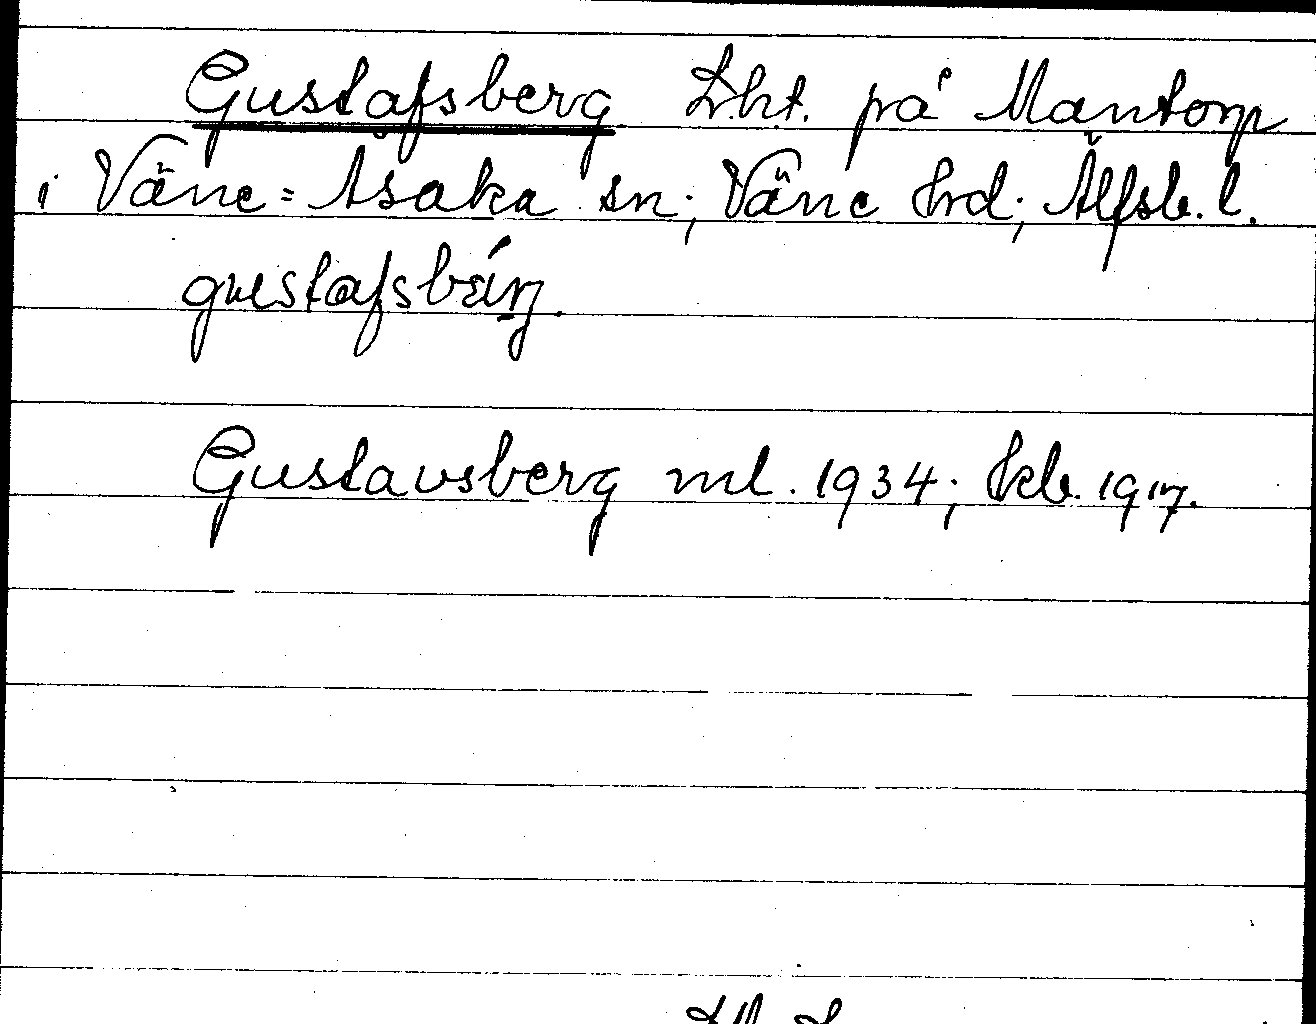 Gustafsberg Lht. på Mantorp
i Väne=Åsaka sn; Väne hrd; Älfsb. l.
gustafsbärg.
Gustavsberg ml. 1934; kb. 1917.